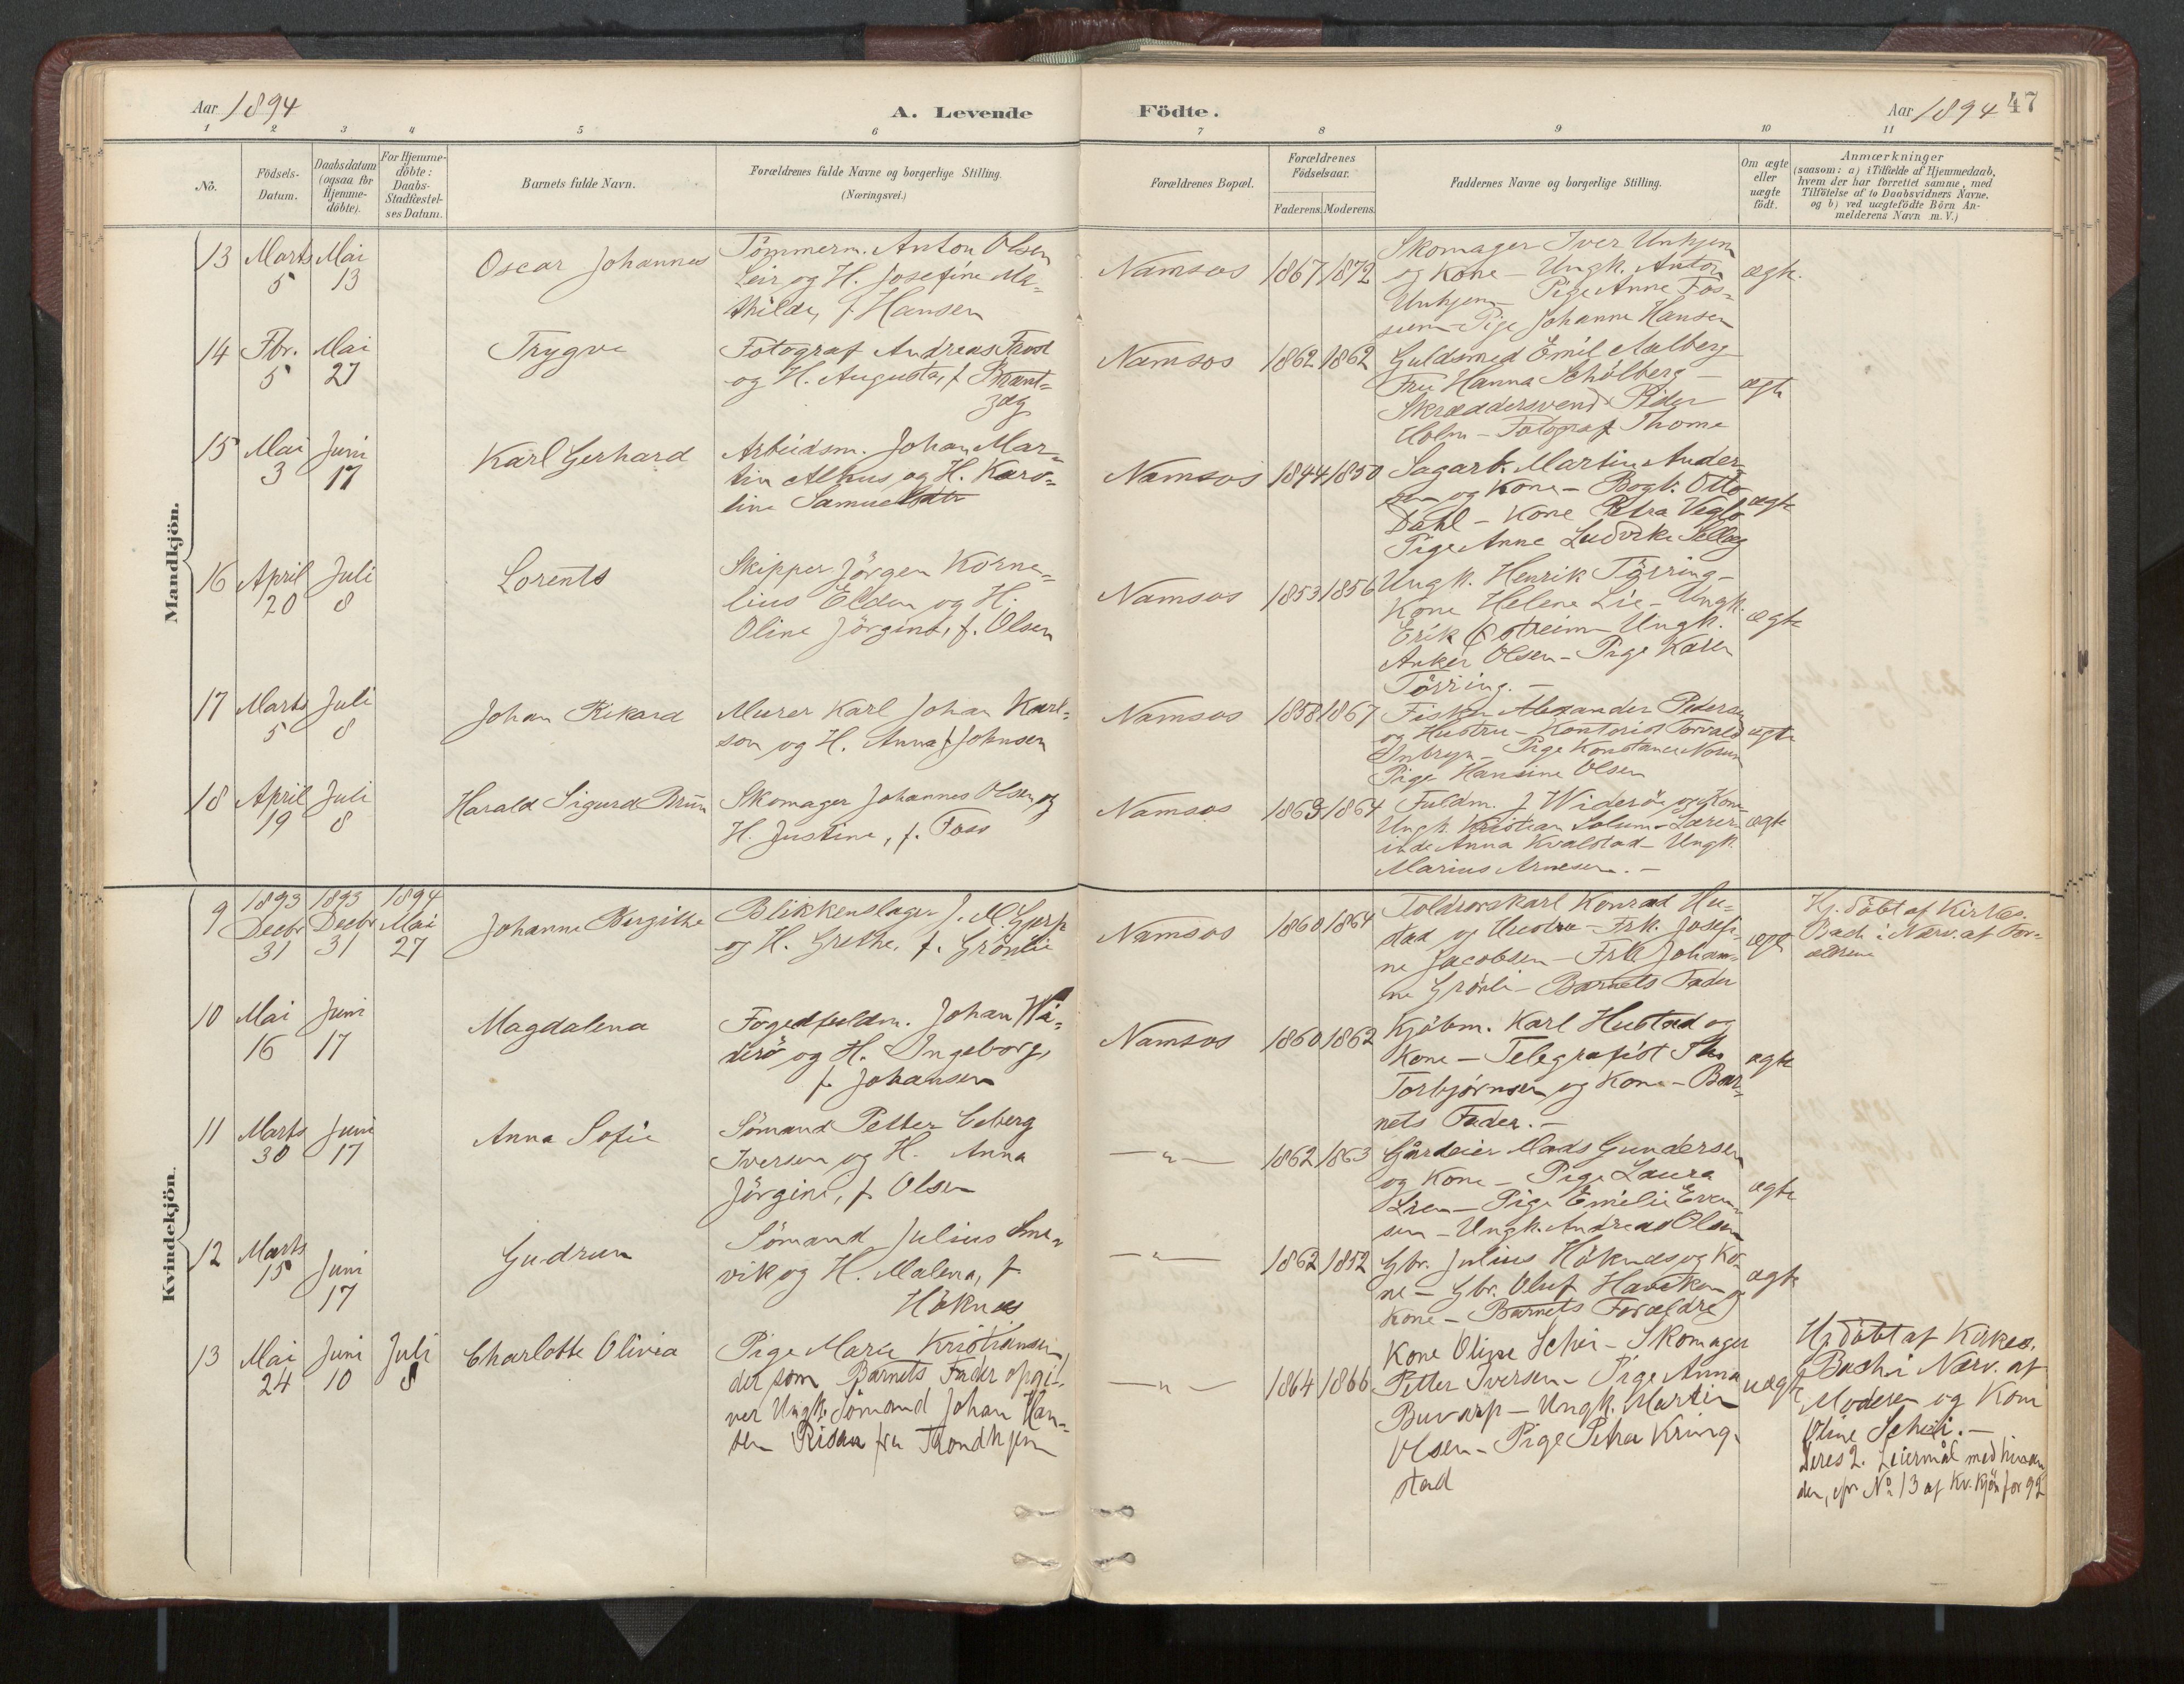 Aar 1894
A. Levende
Födte.
Aar 1894
47
1 2 3 4 5 6 7 8 9 10 11
No.
Födsels-
Datum.
Daabsdatum
(ogsaa for
Hjemme-
döbte).
For Hjemme-
döbte:
Daabs-
Stadfæstel-
ses Datum.
Barnets fulde Navn.
Forældrenes fulde Navne og borgerlige Stilling.
(Næringsvei.)
Forældrenes Bopæl.
Forældrenes
Födselsaar.
Faderens. Moderens.
Faddernes Navne og borgerlige Stilling.
Om ægte
eller
uægte
födt.
Anmærkninger
(saasom: a) i Tilfælde af Hjemmedaab,
hvem der har forrettet samme, med
Tilföielse af to Daabsvidners Navne,
og b) ved uægtefödte Börn An-
melderens Navn m. V.)
Mandkjön.
13 Marts 5 Mai 13
Oscar Johannes
Tömmerm. Anton Olsen
Leir og H. Josefine Ma-
thilde, f. Hansen
Namsos 1867 1872
Skomager Iver Unhjem
og Kone - Ungk. Anton
Unhjem - Pige Anne Fos-
sum - Pige Johanne Hansen
ægte
14 Fbr. 5 Mai 27
Trygve
Fotograf Andreas
og H. Augusta, f. Brant-
zæg
Namsos 1862 1862
Guldsmed Emil Aalberg
Fru Hanna Schölberg -
Skræddersvend Peder
Holm - Fotograf Thome
ægte
15 Mai 3 Juni 17
Karl Gerhard
Arbeidsm. Johan Mar-
tin Alhus og H. Karo-
line Samuelsdtr
Namsos 1844 1850
Sagarb. Martin Ander-
sen og Kone - Bogb. Otto
Dahl - Kone Petra
Pige Anne Ludvike Sellæg
ægte
16 April 20 Juli 8
Lorents
Skipper Jörgen Korne-
lius Elden og H.
Oline Jörgine, f. Olsen
Namsos 1853 1856
Ungk. Henrik Törring -
Kone Helene Lie - Ungk.
Erik Østreim - Ungk.
Anker Olsen - Pige Karen
Törring. -
ægte
17 Marts 5 Juli 8
Johan Rikard
Murer Karl Johan Karl-
son og H. Anna f. Johnsen
Namsos 1858 1867
Fisker Alexander Pedersen
og Hustru - Kontorist Torvald
Inbryn - Pige Konstance
Pige Hansine Olsen
ægte
18 April 19 Juli 8
Harald Sigurd Brun
Skomager Johannes Olsen og
H. Justine, f. Foss
Namsos 1863 1864
Fuldm. J Wideröe og Kone
Ungk. Kristian Solum - Lærer-
inde Anna Kvalstad - Ungk.
Marius Arnesen. -
ægte
Kvindekjön.
9 1893 Decbr 31 1893 Decbr 31 1894 Mai 27
Johanne Bergithe
Blikkenslager J. M.
og H. Grethe, f. Grönlie
Namsos 1860 1864
Toldrorskarl Konrad Hu-
stad og Hustru - Frk. Josefi-
ne Jacobsen - Frk Johan-
ne Grönli - Barnets Fader
ægte
Hj. döbt af Kirkes.
Bach i Nærv. af For-
ældrene
10 Mai 16 Juni 17
Magdalena
Fogedfuldm. Johan Wi-
derö og H. Ingeborg,
f. Johansen
Namsos 1860 1862
Kjöbm. Karl Hustad og
Kone - Telegrafist
Torbjörnsen og Kone - Bar-
nets Fader. -
ægte
11 Marts 30 Juni 17
Anna Sofie
Sömand Petter Esberg
Iversen og H. Anna
Jörgine, f. Olsen
—"— 1862 1863
Gårdeier Mads Gundersen
og Kone - Pige Laura
Lien - Pige Emilie Even-
sen - Ungk. Andreas Olsen
ægte
12 Marts 15 Juni 17
Gudrun
Sömand Julius Sme-
vik og H. Malena, f.
Höknes
—"— 1862 1852
Gbr. Julius Höknes og Ko-
ne - Gbr. Oluf Haviken og
Kone - Barnets Forældre
ægte
13 Mai 24 Juni 10 Juli 8
Charlotte Olivia
Pige Marie Kristiansen,
der som Barnets Fader opgi-
ver Ungk. Sömand Johan Han-
sen Risan fra Trondhjem
—"— 1864 1866
Kone Oline Schei - Skomager
Petter Iversen - Pige Anna
Buvarp - Ungk. Martin
Olsen - Pige Petra Kring-
stad
uægte
Hj. döbt af Kirkes.
Bach i Nærv. af
Moderen og Kone
Oline Schei. -
Deres 2. Leiermål med hinan-
den, cfr No 13 af Kv.kjön for 92